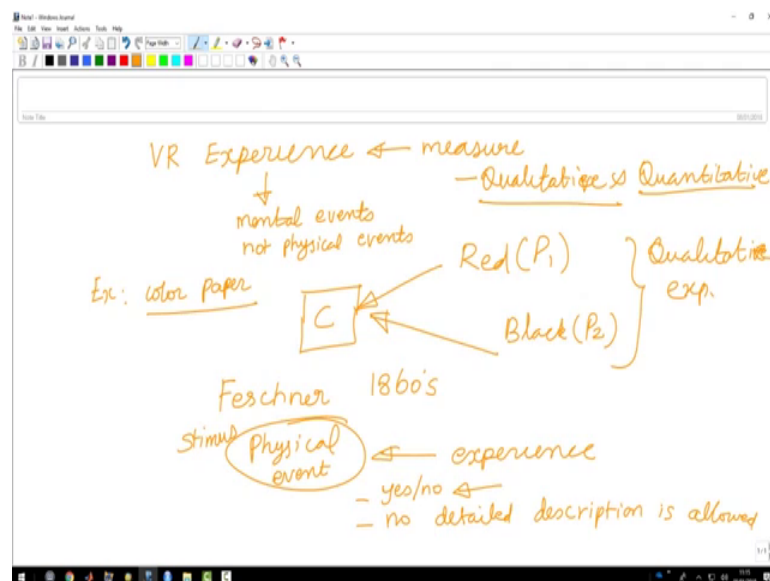 Note1 - Windows Journal
File Edit View Insert Actions Tools Help
Page Width
B I
Note Title
VR Experience ← measure
— Qualitative & Quantitative
mental events
not physical events
Ex: color paper
C
Red (P1)
Black (P2)
Qualitative
exp.
Feschner 1860's
Stimus
Physical
event
← experience
– yes/no ←
– no detailed description is allowed
1/1